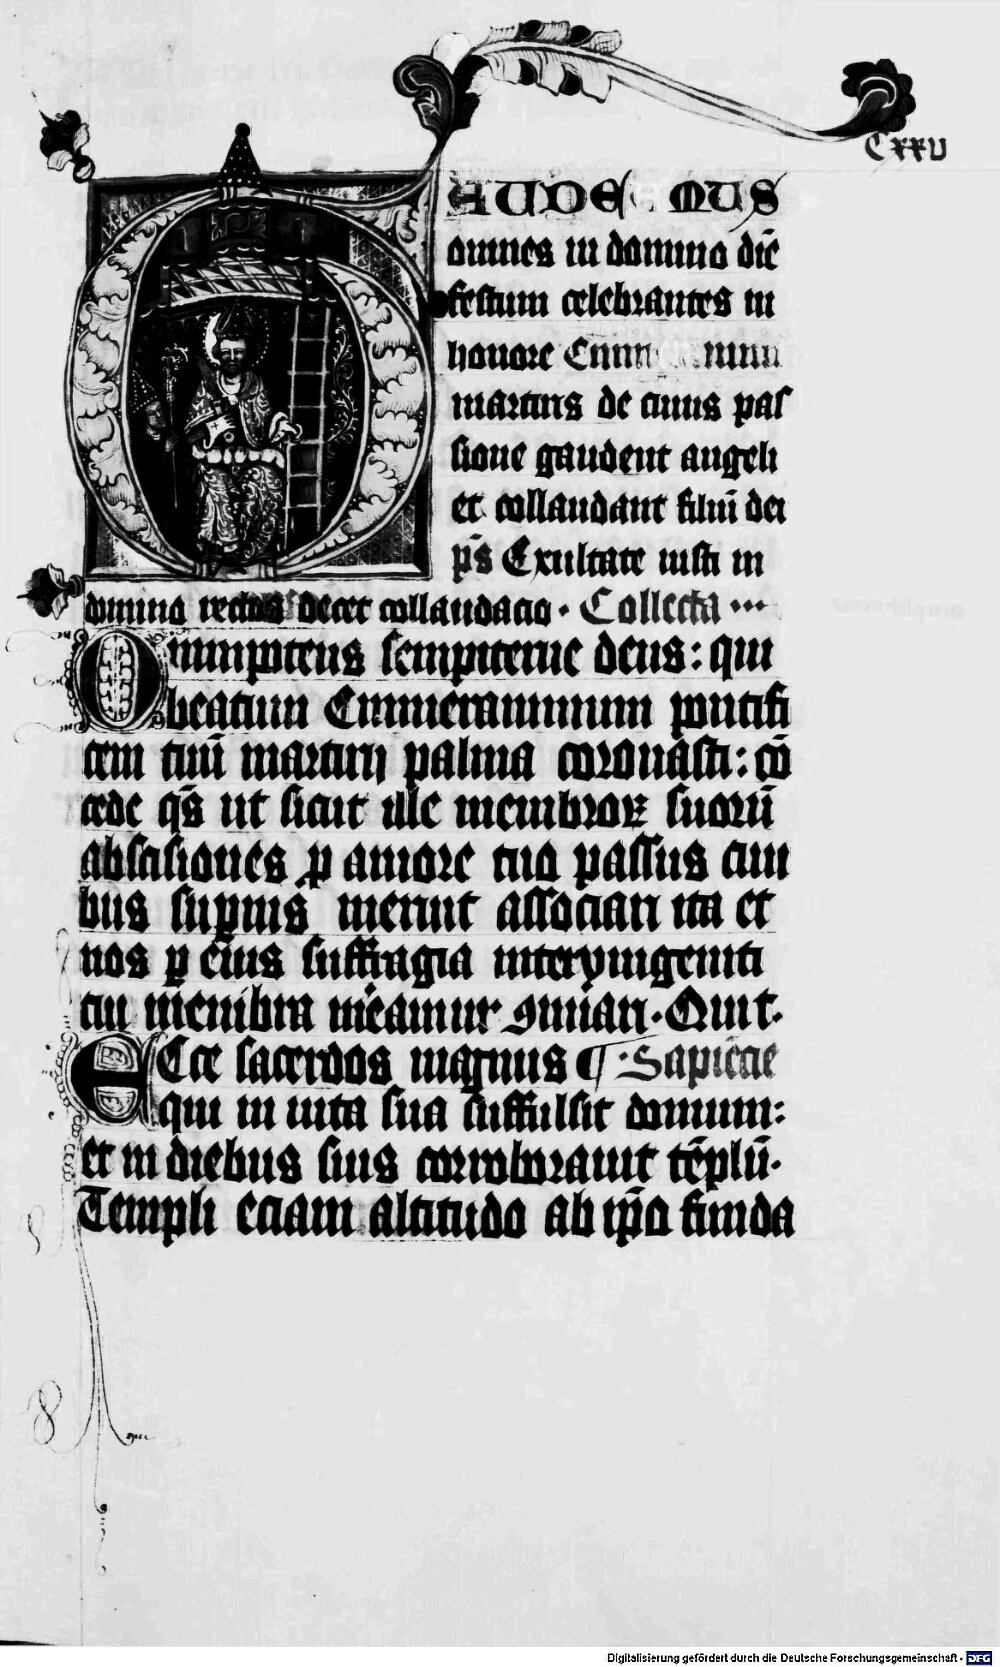 Cxxv
GAUDEMUS
omnes in domino diē
festum celebrantes in
honore Emm nnn
martiris de cuius pas
sione gaudent angeli
et collaudant filiū dei
p̄s Exultate iusti in
domino rectos decet collaudacio · Collecta ···
Omnipotens sempiterne deus: qui
beatum Emmerammum pontifi
cem tuū martirij palma coronasti: cō
cede q̄s ut sicut ille membroꝝ suorū
abscisiones ꝑ amore tuo passus ciui
bus suꝑnis meruit associari ita et
nos ꝑ eius suffragia
tui membra m̄eamur ꝯnu̅ari · Qui t·
Ecce sacerdos magnus ¶ · Sapiētie
qui in uita sua suffulsit domum:
et in diebus suis corroborauit tēplū·
Templi eciam altitudo ab ip̄o funda
Digitalisierung gefördert durch die Deutsche Forschungsgemeinschaft - DFG